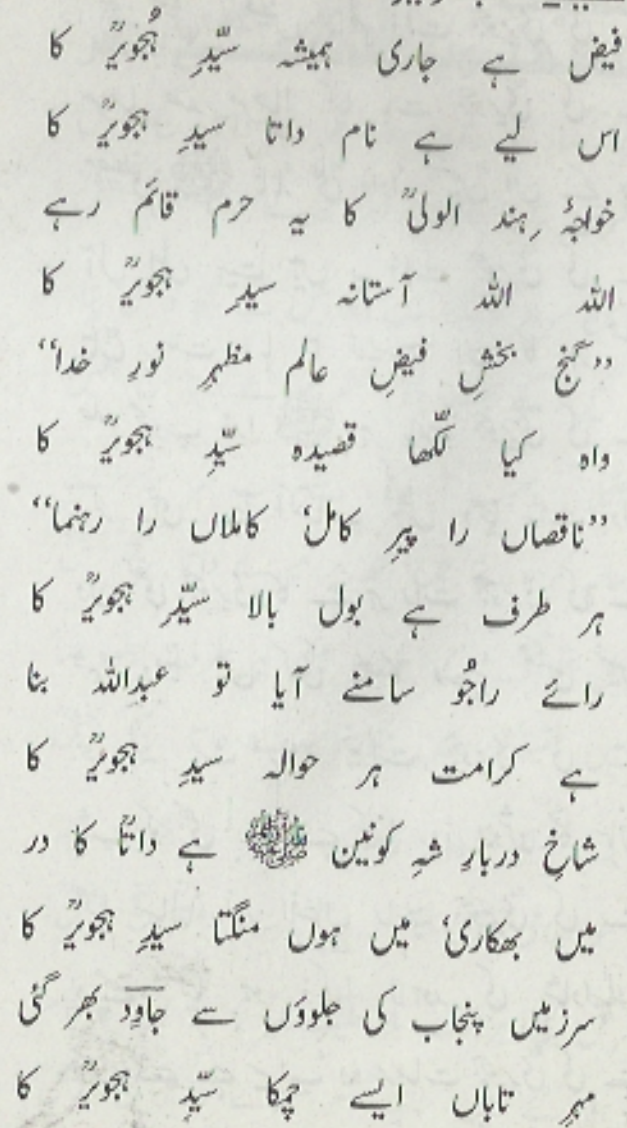 فیض ہے جاری ہمیشہ سیّدِ ہُجویرؒ کا
اس لیے ہے نام داتا سیدِ ہجویرؒ کا
خواجۂ ہند الولیؒ کا یہ حرم قائم رہے
اللہ اللہ آستانہ سیدِ ہجویرؒ کا
”گنج بخشِ فیضِ عالم مظہرِ نورِ خدا“
واہ کیا لکّھا قصیدہ سیّدِ ہجویرؒ کا
”ناقصاں را پیرِ کامل، کاملاں را رہنما“
ہر طرف ہے بول بالا سیّدِ ہجویرؒ کا
رائے راجُو سامنے آیا تو عبداللہ بنا
ہے کرامت ہر حوالہ سیدِ ہجویرؒ کا
شاخِ دربارِ شہِ کونین ﷺ ہے داتاؒ کا در
میں بھکاری، میں ہوں منگتا سیدِ ہجویرؒ کا
سرزمیں پنجاب کی جلووں سے جاوِدؔ بھر گئی
مہرِ تاباں ایسے چمکا سیّدِ ہجویرؒ کا